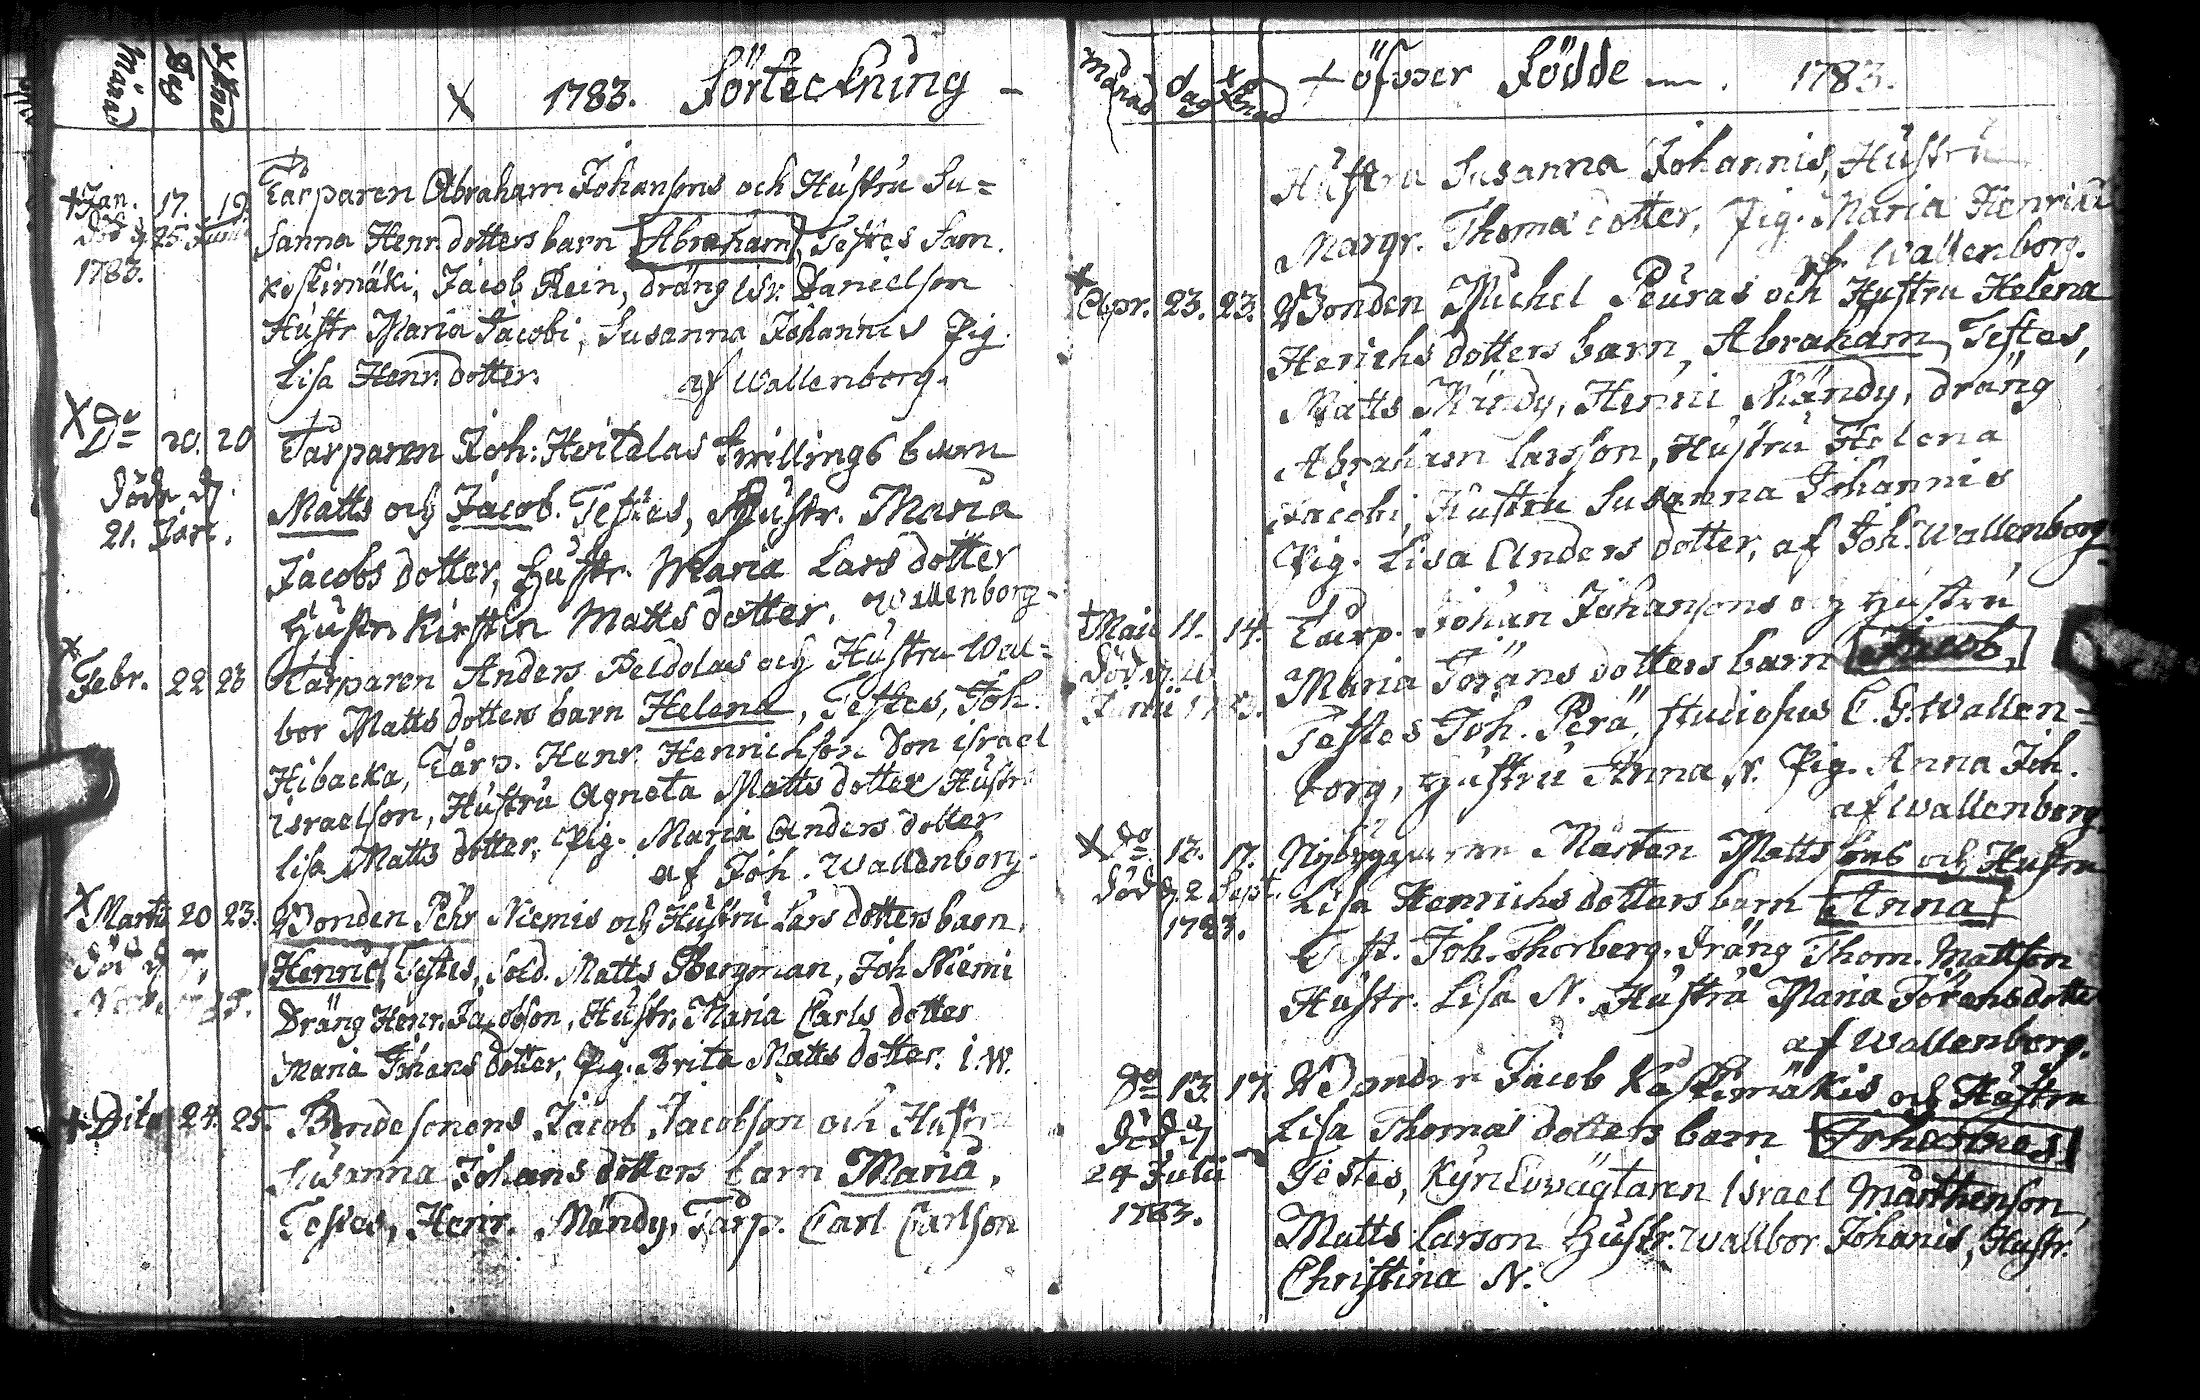 Månad Dag Xstnad
X 1783. Förteckning -
†Jan. 17. 19. Tårparen Abraham Johansons och Hustru Su=
död d. 25. Junii sanna Henr. dotters barn Abraham, Testes Sam.
1783. Koskimäki, Jacob Rein, dräng Isr. Danielson
Hustr Maria Jacobi, Susanna Johannis Pig.
Lisa Henr. dotter. af Wallenborg.
X Do 20. 20 Tårparen Joh: Heitalas twillings barn
döde d. Matts och Jacob. Testes, Hustr. Maria
21. Jan. Jacobs dotter, Hustr. Maria Lars dotter
Hustr Kirstin Matts dotter. Wallenborg-
X Febr. 22 23 Tårparen Anders Peldolas och Hustru Wal=
bor Matts dotters barn Helena, Testes, Joh.
Hibacka, Tårp. Henr. Henrichson Don israel
israelson, Hustru Agneta Matts dotter Hustr.
Lisa Matts dotter, Pig. Maria Anders dotter
af Joh. Wallenborg.
X Martii 20 23. Bonden Pehr Niemis och Hustru Lars dotters barn
död d. Henric, Testes, Sold. Matts Bergman, Joh Niemi
Dräng Henr. Jacobson, Hustr. Maria Carls dotter
Maria Johans dotter, Pig. Brita Matts dotter. I. W.
† Dito 24. 25. Bondesonens Jacob Jacobson och Hustru
Susanna Johans dotters barn Maria.
Testes, Henr. Mändy, Tårp. Carl Carlson
Månad dag Xstnad + öfwer Födde 1783.
Hustru Susanna Johannis, Hustru
Margr. Thoma dotter, Pig. Maria Henrici
af Wallenborg.
X Apr. 23. 23. Bonden Michel Peuras och Hustru Helena
Henrichs dotters barn, Abraham, Testes,
Matts Mändy, Henric Mändy, dräng
Abraham Larsson, Hustru Helena
Jacobi, Hustru Susanna Johannis
Pig. Lisa Anders dotter, af Joh. Wallenborg
†Maii 11. 14. Tårp. Johan Johansons och Hustru
död d. 16 Maria Jörans dotters barn Jacob,
Junii 1783. Testes Joh. Perä, studiosus C. G. Wallen=
borg, Hustru Anna N. Pig. Anna Joh.
af Wallenborg.
X Do 12. 17. Nybyggaren Mårten Mattsons och Hustru
död d. 2 Sept. Lisa Henrichs dotters barn Anna
1783. Test. Joh. Thorberg. dräng Thom. Mattson
Hustr. Lisa N. Hustru Maria Jöransdotter
af Wallenborg.
Do 13. 17. Bonden Jacob Koskimäkis och Hustru
död d. Lisa Thomas dotters barn Johannes
24 Julii Testes, Kyrckowägtaren Israel Mårthenson,
1783. Matts Larson Hustr. Wallbor Johanis, Hustr.
Christina N.